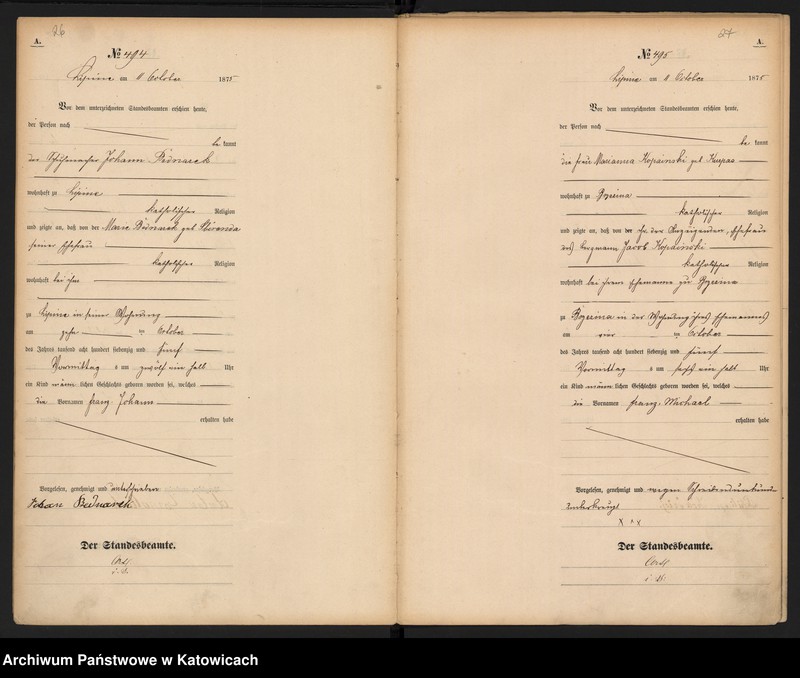 26
A.
№ 494
Lipine am 11 October 1875
Vor dem unterzeichneten Standesbeamten erschien heute,
der Person nach
be kannt
der Schuhmacher Johann Bednarek
wohnhaft zu Lipine
katholischer Religion
und zeigte an, daß von der Marie Bednarek geb
seiner Ehefrau
katholischer Religion
wohnhaft bei ihm
zu Lipine in seiner Wohnung
am zehn ten October
des Jahres tausend acht hundert siebenzig und fünf
Vormittag s um zwölf ein halb Uhr
ein Kind männ lichen Geschlechts geboren worden sei, welches
die Vornamen Franz Johann
erhalten habe
Vorgelesen, genehmigt und unterschrieben
Johann Bednarek
Der Standesbeamte.
27
A.
№ 495
Lipine am 11 October 1875
Vor dem unterzeichneten Standesbeamten erschien heute,
der Person nach
be kannt
die Frau Marianna Kopainski geb Kurpas
wohnhaft zu
katholischer Religion
und zeigte an, daß von der Anzeigenden, Ehefrau
des Bergmann Jacob Kopainski
katholischer Religion
wohnhaft bei ihrem Ehemanne zu
zu in der Wohnung ihres Ehemannes
am vier ten October
des Jahres tausend acht hundert siebenzig und fünf
Vormittag s um sechs ein halb Uhr
ein Kind männ lichen Geschlechts geboren worden sei, welches
die Vornamen Franz, Michael
erhalten habe
Vorgelesen, genehmigt und wegen Schreibensunkunde
unterkreuzt
x x x
Der Standesbeamte.
Archiwum Państwowe w Katowicach